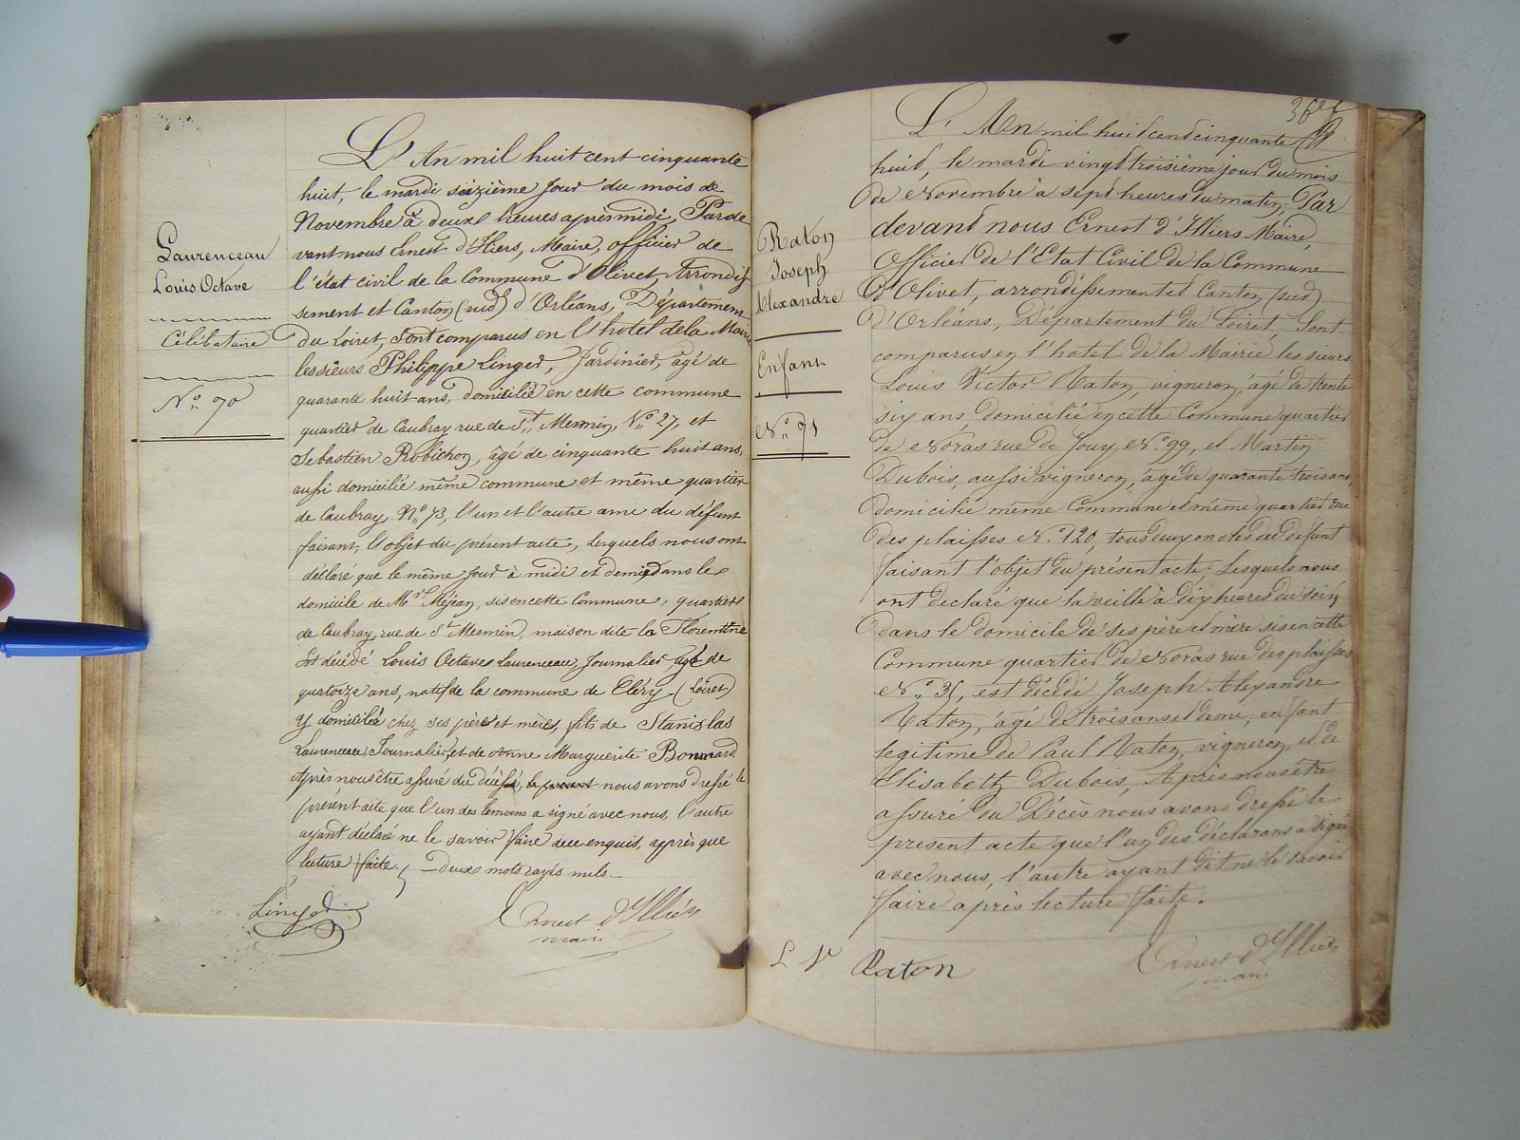 Laurenceau
Louis Octave
Célibataire
N° 70
L'An mil huit cent cinquante
huit, le mardi seizième jour du mois de
Novembre à deux heures après midi, Par de
vant nous Ernest d'Illiers, Maire, officier de
l'état civil de la Commune d'Olivet, Arrondis
sement et Canton (sud) d'Orléans, Département
du Loiret, sont comparus en l'hotel de la Mairie
les sieurs Philippe Linger, Jardinier, âgé de
quarante huit ans, domicilié en cette commune
quartier de Caubray rue de St Mesmin, N° 27, et
Sebastien Robichon, âgé de cinquante huit ans,
aussi domicilié même commune et même quartier
de Caubray, N° 73, l'un et l'autre ami du défunt
faisant, l'objet du présent acte, Lesquels nous ont
déclaré que le même jour à midi et demi dans le
domicile de Mr Méjean, sis en cette Commune, quartier
de Caubray, rue de St Mesmin, maison dite la Florentine
est décédé Louis Octave Laurenceau, Journalier âgé de
quatorze ans, natif de la commune de Cléry (Loiret)
y domicilié chez ses père et mère, fils de Stanislas
Laurenceau Journalier, et de Marguerite Bonnard
Après nous être assuré du décès, nous avons dressé le
présent acte que l'un des temoins a signé avec nous, l'autre
ayant déclaré ne le savoir faire de ce enquis, après que
lecture faite, — deux mots rayés nuls —
Linger
Ernest d'Illiers
maire
Raton
Joseph
Alexandre
Enfant
N° 71
L'An mil huit cent cinquante
huit, le mardi vingt troisième jour du mois
de Novembre à sept heures du matin, Par
devant nous Ernest d'Illiers Maire,
Officier de l'Etat Civil de la Commune
d'Olivet, arrondissement et Canton (sud)
d'Orléans, Département du Loiret, Sont
comparus en l'hotel de la Mairie les sieurs
Louis Victor Raton, vigneron, âgé de trente
six ans, domicilié en cette Commune quartier
de Noras rue de Jouy, N° 99, et Martin
Dubois, aussi vigneron, âgé de quarante trois ans,
domicilié même Commune et même quartier rue
des plaisses N° 120, tous deux oncles du défunt
faisant l'objet du présent acte. Lesquels nous
ont declaré que la veille à dix heures du soir,
dans le domicile de ses père et mère sis en cette
Commune quartier de Noras rue des plaisses
est décédé Joseph Alexandre
Raton, âgé de trois ans et demi, enfant
legitime de Paul Raton, vigneron, et de
Elisabeth Dubois, Après nous être
assuré du Décès nous avons dressé le
present acte que l'un des déclarans a signé
avec nous, l'autre ayant dit ne le savoir
faire après lecture faite.
L V Raton
Ernest d'Illiers
maire